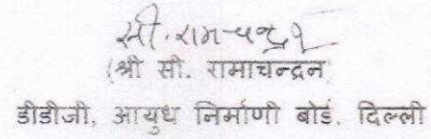 सी. रामचन्द्रन
(श्री सी. रामाचन्द्रन
डीडीजी, आयुध निर्माणी बोर्ड. दिल्ली